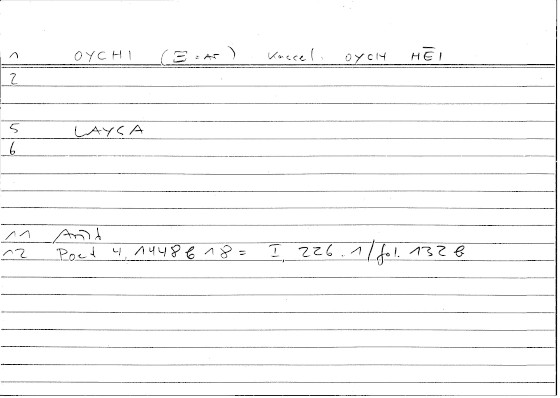 1 OYCHI (Ξ = AT) Vaccel. OYCH HĒI
2
5 LAYCA
6
11
12 Poet 4, 1448 b 18 = I, 226.1/fol. 132 b